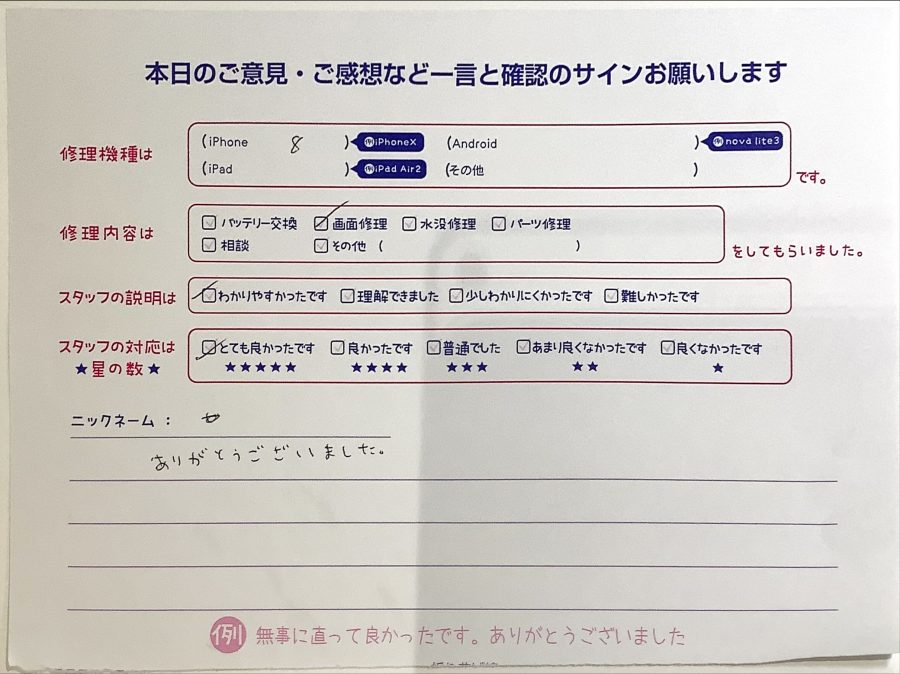 本日のご意見・ご感想など一言と確認のサインお願いします
修理機種は (iPhone 8 ) 例iPhoneX (Android ) 例nova lite3
(iPad ) 例iPad Air2 (その他 ) です。
修理内容は バッテリー交換 画面修理 水没修理 パーツ修理
相談 その他 ( ) をしてもらいました。
スタッフの説明は わかりやすかったです 理解できました 少しわかりにくかったです 難しかったです
スタッフの対応は とても良かったです 良かったです 普通でした あまり良くなかったです 良くなかったです
★星の数★ ★★★★★ ★★★★ ★★★ ★★ ★
ニックネーム :
ありがとうございました。
例 無事に直って良かったです。ありがとうございました